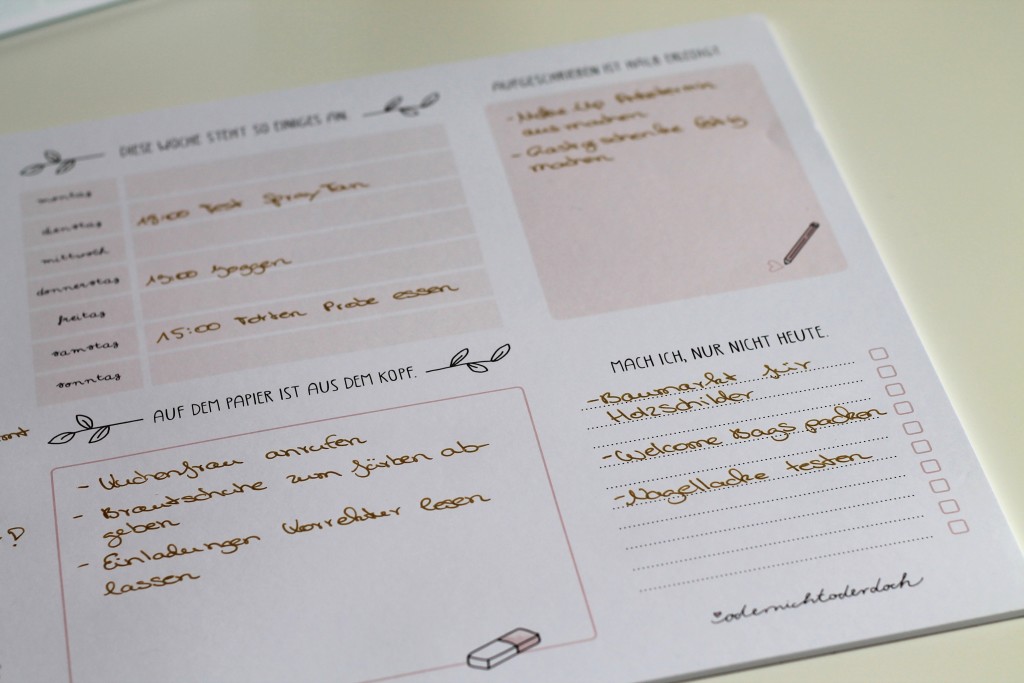 DIESE WOCHE STEHT SO EINIGES AN.
montag
dienstag
19:00 Test Spray Tan
mittwoch
donnerstag
19:00 Joggen
freitag
samstag
15:00 Torten Probe essen
sonntag
AUFGESCHRIEBEN IST HALB ERLEDIGT.
- Make Up Probetermin
ausmachen
- Gastgeschenke fertig
machen
AUF DEM PAPIER IST AUS DEM KOPF.
- Kuchenfrau anrufen
- Brautschuhe zum färben ab-
geben
- Einladungen Korrektur lesen
lassen
MACH ICH, NUR NICHT HEUTE.
- Baumarkt für
Holzschilder
- Welcome Bags packen
- Nagellacke testen
odernichtoderdoch